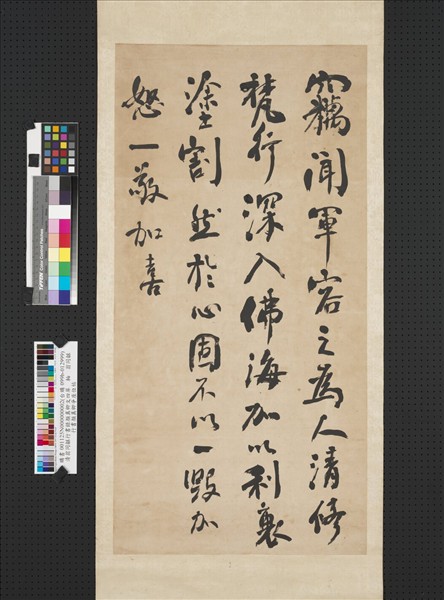 竊聞軍容之為人清修
梵行深入佛海加以利衰
塗割然於心固不以一毀加
怒一敬加喜